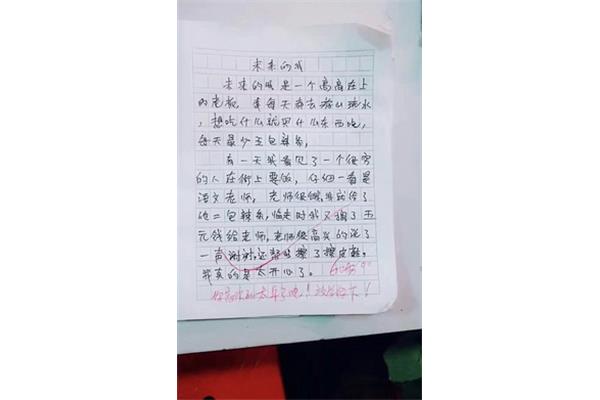 未来的我
未来的我是一个高高在上
的老板，我每天都去游山玩水
，想吃什么就买什么东西吃，
每天最少五包辣条，
有一天我看见了一个很穷
的人在街上要饭，仔细一看是
语文老师，老师很饿，我就给了
他二包辣条，临走时我又掏了五
元钱给老师，老师很高兴的说了
一声谢谢，还帮我擦了擦皮鞋，
我真的是太开心了。
你高兴的太早了吧！放学留下！